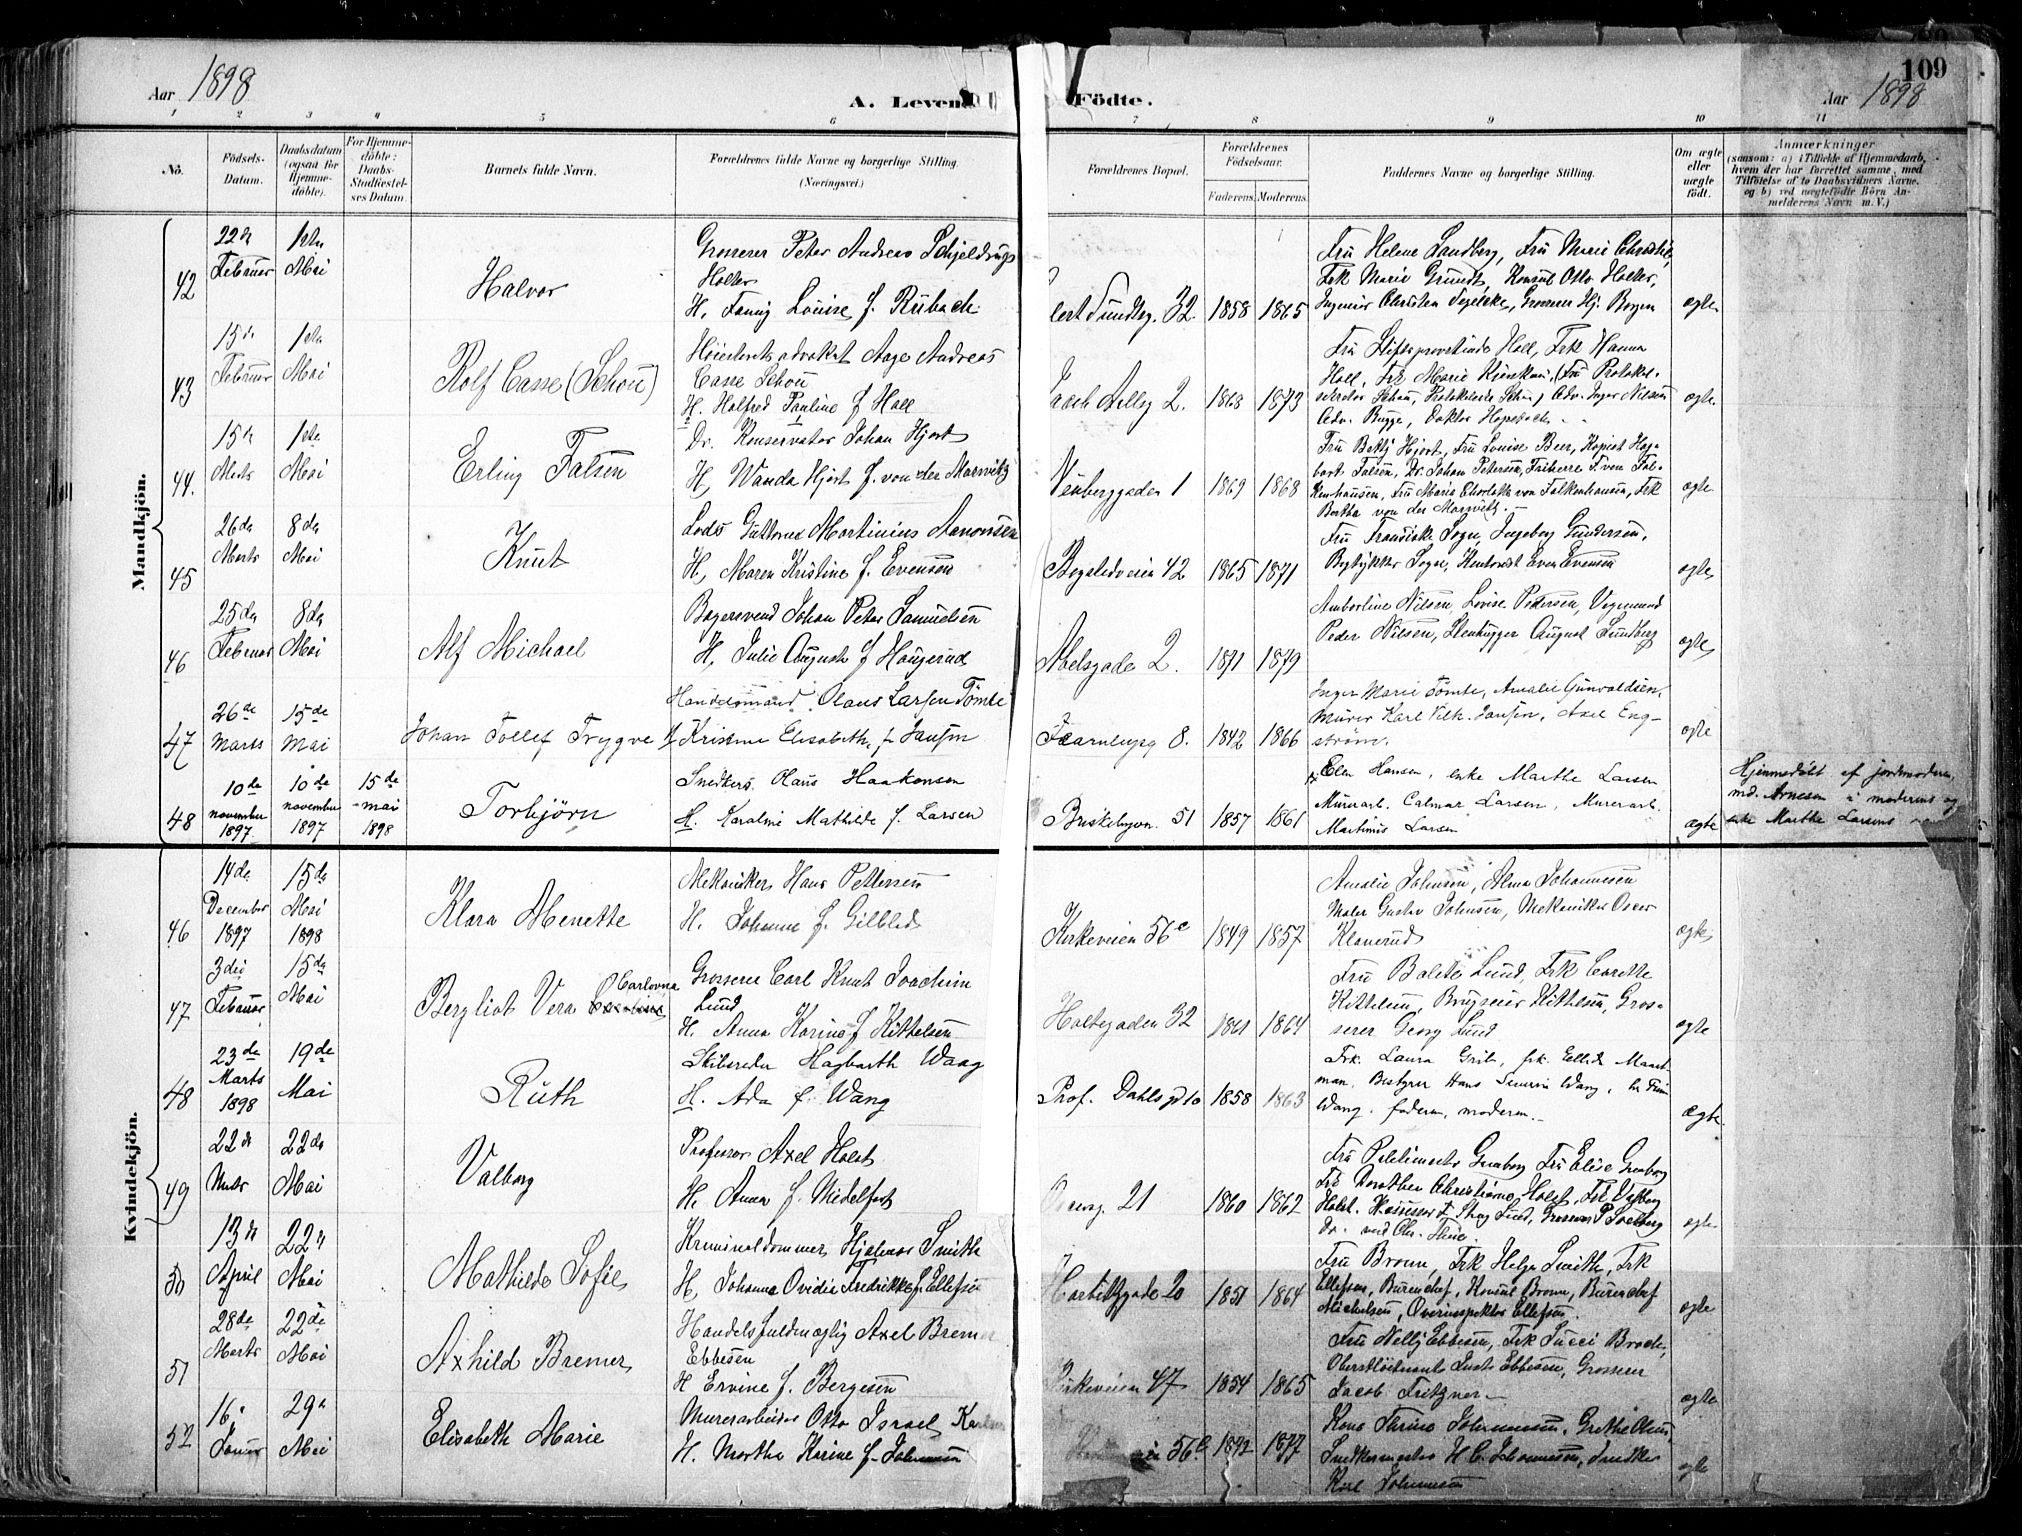 109
Aar 1898
A. Levend
Födte.
Aar 1898
1 2 3 4 5 6 7 8 9 10 11
No.
Födsels-
Datum.
Daabsdatum
(ogsaa for
Hjemme-
döbte).
For Hjemme-
döbte:
Daabs-
Stadfæstel-
ses Datum.
Barnets fulde Navn.
Forældrenes fulde Navne og borgerlige Stilling.
(Næringsvei.)
Forældrenes Bopæl.
Forældrenes
Födselsaar.
Faderens. Moderens.
Faddernes Navne og borgerlige Stilling.
Om ægte
eller
uægte
födt.
Anmærkninger
(saasom: a) i Tilfælde af Hjemmedaab,
hvem der har forrettet samme, med
Tilföielse af to Daabsvidners Navne,
og b) ved uægtefödte Börn An-
melderens Navn m. V.)
Mandkjön.
42
22de Februar
1ste Mai
Halvor
Grosserer Peter Andreas Schjeldrups
Holter
H. Fanny Louise f. Rübach
lert Sundtsg. 32
1858 1865
Fru Helene Sandberg, Fru Marie Christie,
Frk Marie Grundt, Konsul Otto Holter,
Ingeniør Christian Segelcke, Grosserer Hj. Borgen
ægte
43
15de Februar
1ste Mai
Rolf Casse (Schou)
Høiesteretsadvokat Aage Andreas
Casse Schou
H. Halfred Pauline f Holl
Jacob Aallsg 2.
1868 1873
Fru Stiftsprovstinde Holl, Frk Hanna
Holl, Frk Marie Kjerskou, (Fru Protokol-
Adv. Bugge, Doktor
ægte
44.
15de Marts
1ste Mai
Erling Falsen
Dr. Konservator Johan Hjort
H. Wanda Hjort f. von der Marwitz
Neuberggaden 1
1869 1868
Fru Betty Hjort, Fru Louise Beer, Kopist Hag-
bart Falsen, Dr. Johan Petersen, Friherre F. von Fal-
kenhausen, Fru Maria Charlotte von Falkenhausen, Frk
Bertha von der Marwitz. -
ægte
45
26de Marts
8de Mai
Knut
Lods Guttorm Martinius Aanonsen
H. Maren Kristine f. Evensen
Bogstadveien 42
1865 1871
Fru Fransiske Sogn, Ingeborg Gundersen,
Bogtykker Sogn, Kontorist Even Evensen
ægte
46
25de Februar
8de Mai
Alf Michael
Bagersvend Johan Peter Samuelsen
H. Julie Augusta f Haugerud
Abelsgade 2.
1871 1879
Amborline Nilsen, Lovise Pedersen, Vognmand
Peder Nilsen, Stenhugger August Sundberg
ægte
47
26de marts
15de mai
Johan Tollef Trygve
Handelsmand Olaus Larsen Tømte
H. Kristine Elisabeth f. Jansen
Fearnleysg 8.
1842 1866
Inger Marie Tømte, Amalie Gunvaldsen,
Murer Karl Vilh. Jansen, Axel Eng-
strøm.
ægte
48
10de november 1897
10de november 1897
15de mai 1898
Torbjörn
Snedkers. Olaus Haakonsen
H. Karoline Mathilde f. Larsen
Briskebyvn. 51
1857 1861
Elen Hansen, enke Marthe Larsen
Murerarb. Calmar Larsen, Murerarb.
Martinus Larsen
ægte
Hjemmedöbt af jordmoderen,
md. Arnesen i moderens og
enke Marthe Larsens
Kvindekjön.
46
14de December 1897
15de Mai 1898
Klara Menette
Mekaniker Hans Pettersen
H. Johanne f. Gilblad
Kirkeveien 56c
1849 1857
Amalie Johnsen, Alma Johannesen
Maler Gustav Johnsen, Mekaniker Oscar
Klanerud
ægte
47
3die Februar
15de Mai
Bergliot Vera Carlovna
Grosserer Carl Knut Joachim
Lund
H. Anna Karine f Kittelsen
Holtegaden 32
1861 1864
Fru Balette Lund, Frk Carette
Kittelsen, Brugseier Kittelsen, Gros-
serer Georg Lund
ægte
48
23de Marts 1898
19de Mai
Ruth
Skibsreder Hagbarth Waag
H. Ada f. Wang
Prof. Dahls gd 10
1858 1863
Frk. Laura Grib, frk.
man, Bestyrer Hans Wang,
Wang. faderen, moderen. -
ægte
49
22de Marts
22de Mai
Valborg
Professor Axel Holst
H. Anna f. Midelfart
21
1860 1862
Fru Politimester Grønborg Fru Elise Grønborg
Frk Dorothea Christiane Holst, Frk Valborg
Holst,
ægte
50
13de April
22de Mai
Mathilde Sofie
Kriminaldommer Hjalmar Smith
H. Johanna Ovidia Fredrikke f. Ellefsen
Harbitzgade 20
1851 1864
Fru Broun, Frk Helga Smith, Frk
Ellefsen, Bureauchef, Konsul Broun, Bureauchef
Michelsen, Overinspektør Ellefsen
ægte
51
28de Marts
22de Mai
Axhild Bremer
Handelsfuldmægtig Axel Bremer
Ebbesen
H Ervine f. Bergesen
Kirkeveien 47
1854 1865
Fru Nelly Ebbesen, Frk Succi Brode,
Oberstløitnant Just Ebbesen, Grosserer
Jacob Fritzner -
ægte
52
16de Januar
29de Mai
Elisabeth Marie
Murerarbeider Otto Israel
H. Martha Karine f. Johannesen
56c
1842 1877
Kone Thrine Johannesen, Grethe Olsen,
Snedkermester H C Johannesen, Snedker
Karl Johannesen
ægte